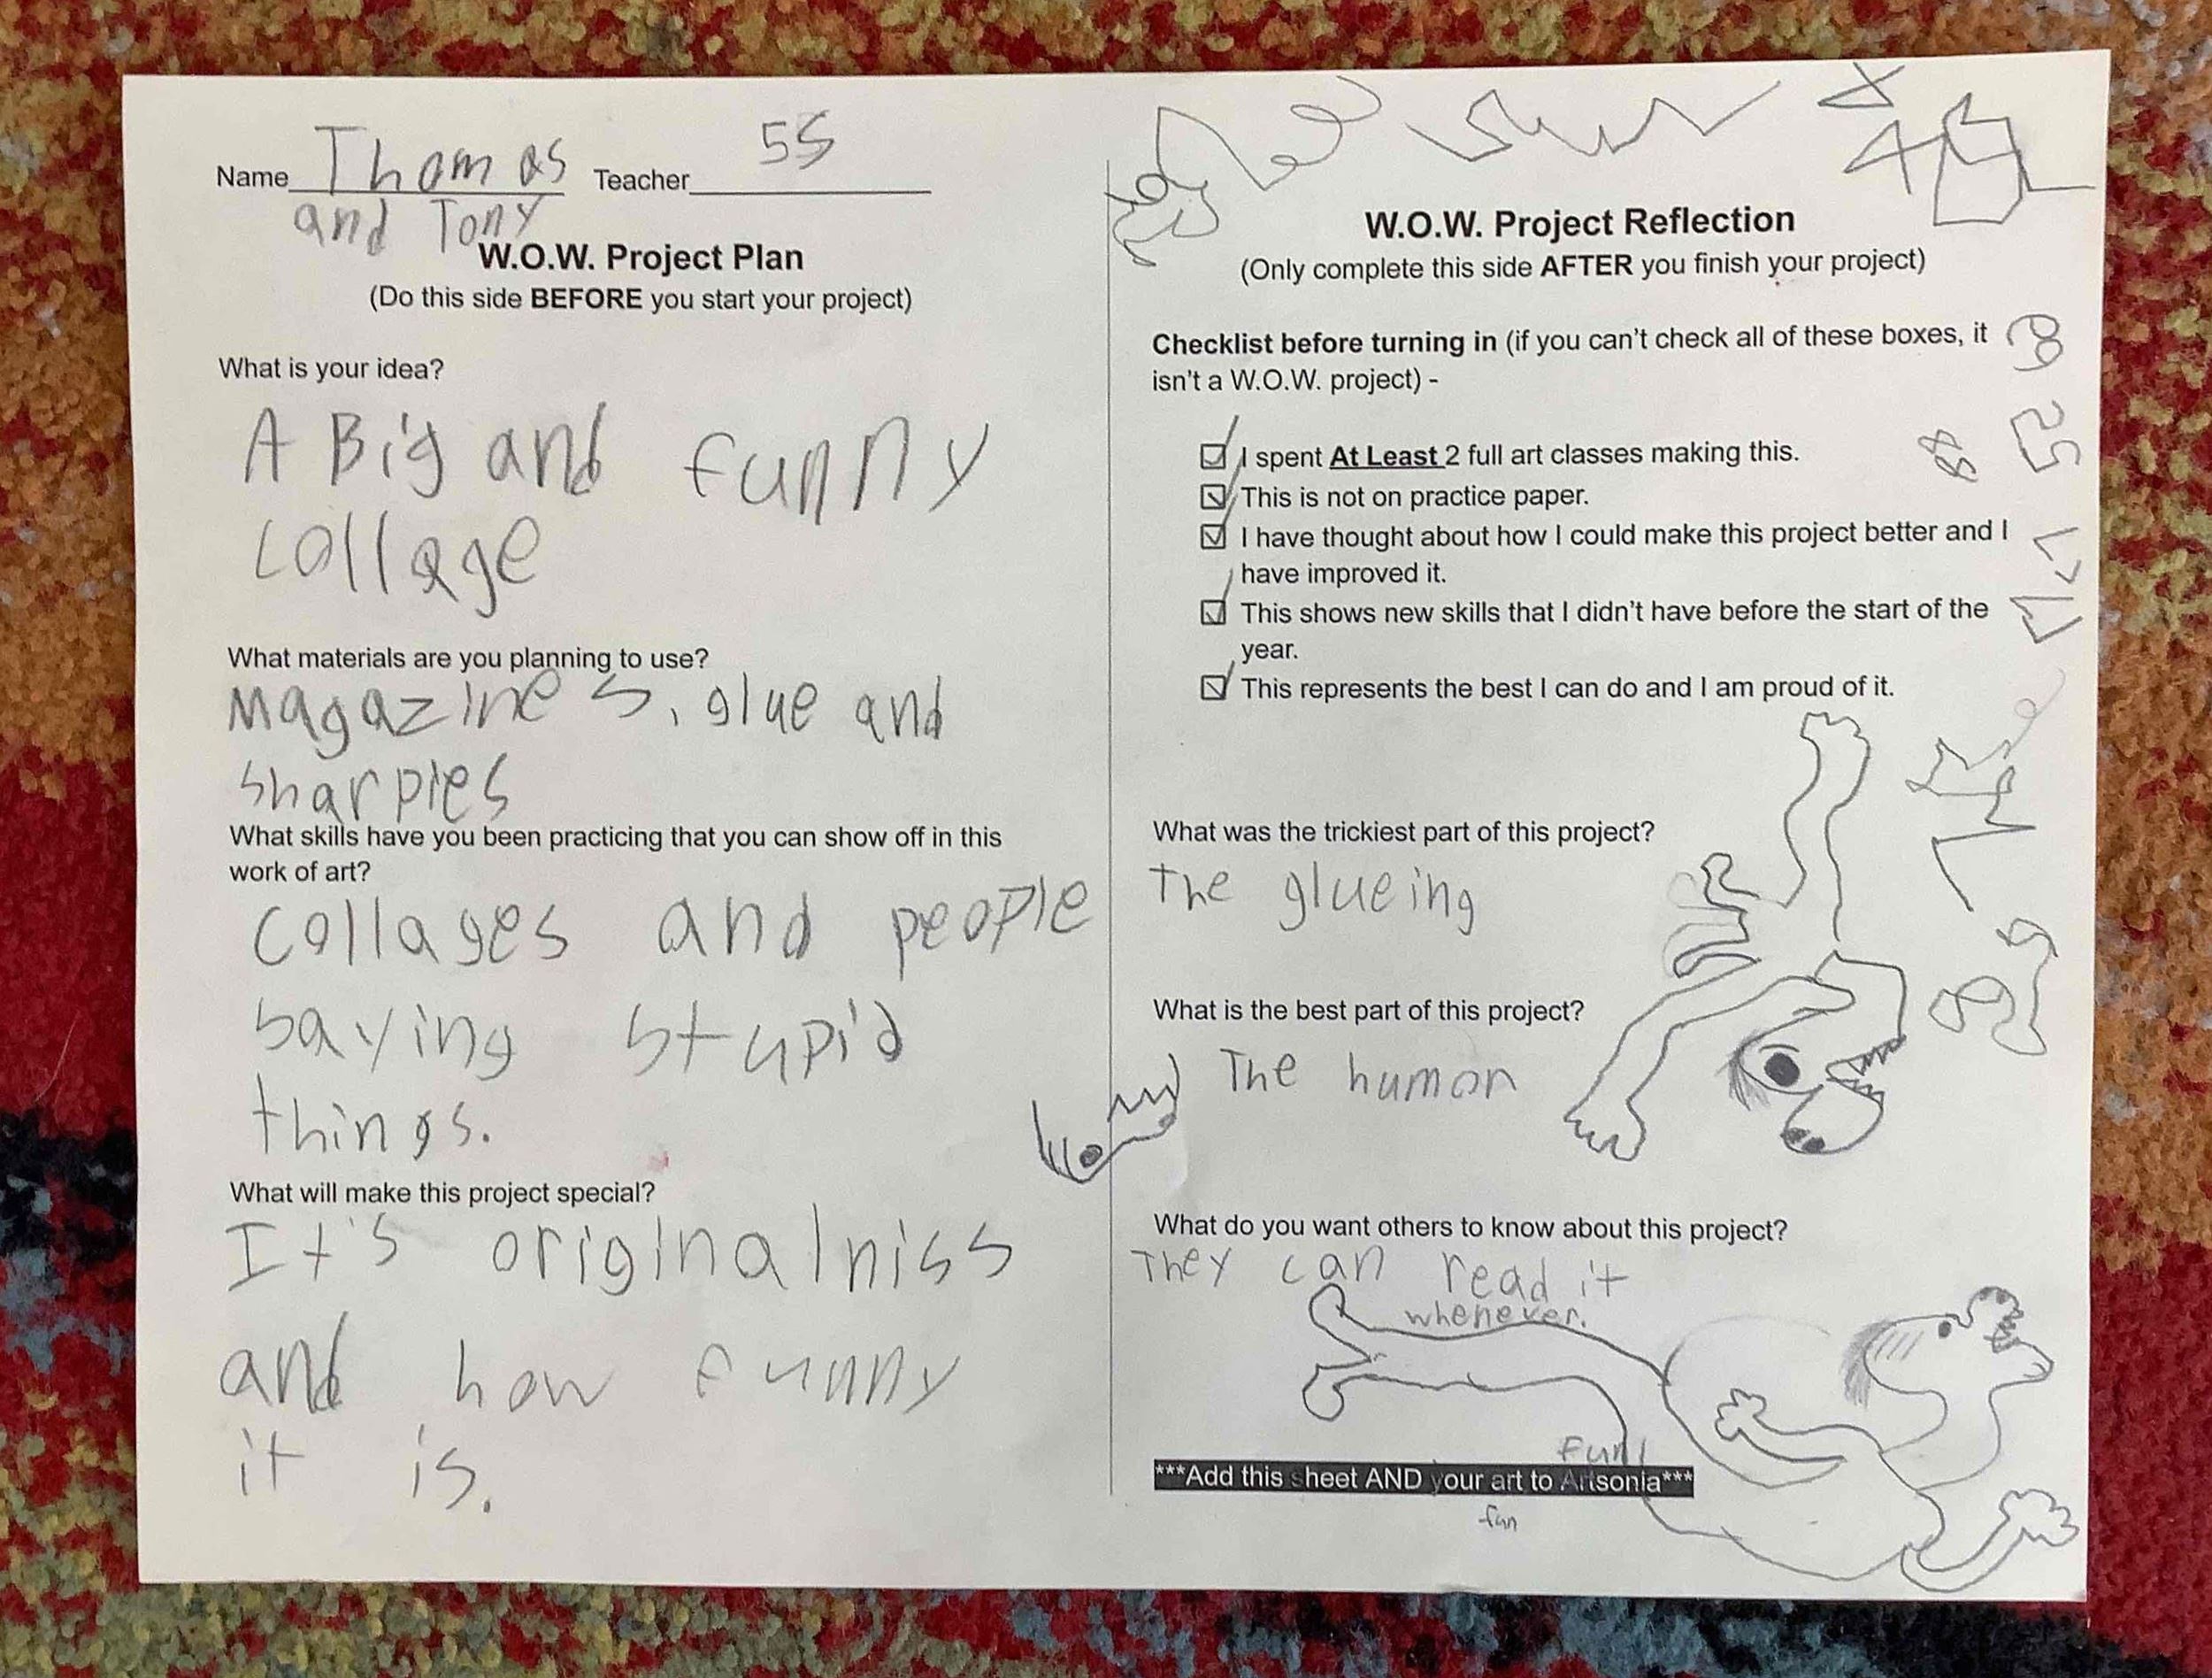 Name Thomas Teacher 5S
and Tony
W.O.W. Project Plan
(Do this side BEFORE you start your project)
What is your idea?
A Big and funny
collage
What materials are you planning to use?
Magazines, glue and
sharpies
What skills have you been practicing that you can show off in this
work of art?
collages and people
saying stupid
things.
What will make this project special?
It's originalniss
and how funny
it is.
W.O.W. Project Reflection
(Only complete this side AFTER you finish your project)
Checklist before turning in (if you can't check all of these boxes, it
isn't a W.O.W. project) -
I spent At Least 2 full art classes making this.
This is not on practice paper.
I have thought about how I could make this project better and I
have improved it.
This shows new skills that I didn't have before the start of the
year.
This represents the best I can do and I am proud of it.
What was the trickiest part of this project?
The glueing
What is the best part of this project?
The human
What do you want others to know about this project?
They can read it
whenever.
Fun!
***Add this sheet AND your art to Artsonia***
fun